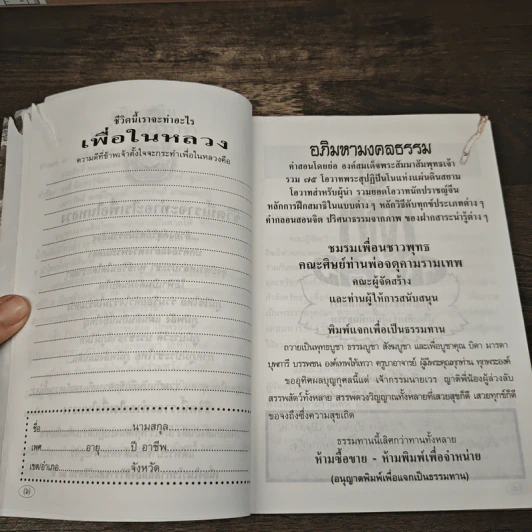 ชีวิตนี้เราจะทำอะไร
เพื่อในหลวง
ความดีที่ข้าพเจ้าตั้งใจจะกระทำเพื่อในหลวงคือ
ชื่อ นามสกุล
เพศ อายุ ปี อาชีพ
เขต/อำเภอ จังหวัด
อภิมหามงคลธรรม
คำสอนโดยย่อ องค์สมเด็จพระสัมมาสัมพุทธเจ้า
รวม ๗๕ โอวาทพระสุปฏิปันในแห่งแผ่นดินสยาม
โอวาทสำหรับผู้นำ รวมยอดโอวาทนักปราชญ์จีน
หลักการฝึกสมาธิในแบบต่าง ๆ หลักวิธีดับทุกข์ประเภทต่าง ๆ
คำกลอนสอนจิต ปริศนาธรรมจากภาพ ของฝากสาระน่ารู้ต่าง ๆ
ชมรมเพื่อนชาวพุทธ
คณะศิษย์ท่านพ่อจตุคามรามเทพ
คณะผู้จัดสร้าง
และท่านผู้ให้การสนับสนุน
พิมพ์แจกเพื่อเป็นธรรมทาน
ถวายเป็นพุทธบูชา ธรรมบูชา สังฆบูชา และเพื่อบูชาคุณ บิดา มารดา
บุพการี บรรพชน องค์เทพไท้เทวา ครูบาอาจารย์ ผู้มีพระคุณทุกท่าน ทุกพระองค์
ขออุทิศผลบุญกุศลนี้แด่ เจ้ากรรมนายเวร ญาติพี่น้องผู้ล่วงลับ
สรรพสัตว์ทั้งหลาย สรรพดวงวิญญาณทั้งหลายที่เสวยสุขก็ดี เสวยทุกข์ก็ดี
ขอจงถึงซึ่งความสุขเถิด
ธรรมทานนี้เลิศกว่าทานทั้งหลาย
ห้ามซื้อขาย - ห้ามพิมพ์เพื่อจำหน่าย
(อนุญาตพิมพ์เพื่อแจกเป็นธรรมทาน)